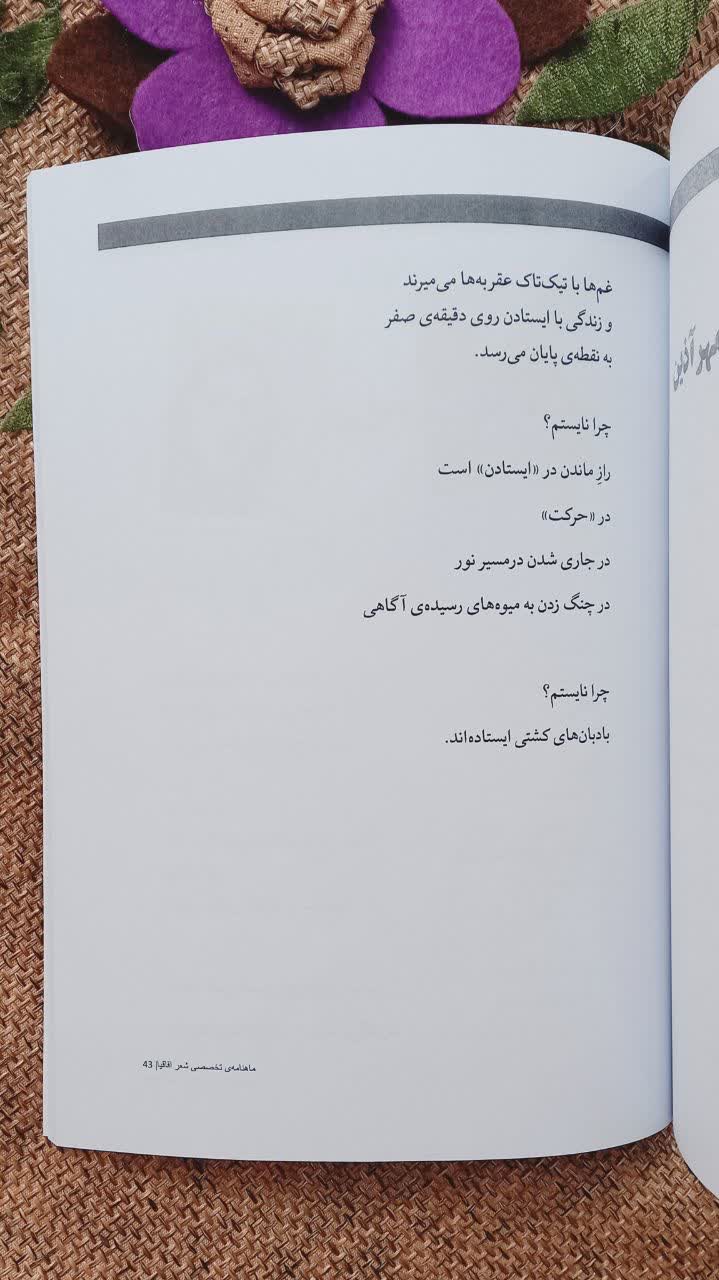 غم‌ها با تیک‌تاک عقربه‌ها می‌میرند
و زندگی با ایستادن روی دقیقه‌ی صفر
به نقطه‌ی پایان می‌رسد.
چرا نایستم؟
رازِ ماندن در «ایستادن» است
در «حرکت»
در جاری شدن درمسیر نور
در چنگ زدن به میوه‌های رسیده‌ی آگاهی
چرا نایستم؟
بادبان‌های کشتی ایستاده‌اند.
ماهنامه‌ی تخصصی شعر اقاقیا| 43
آذین